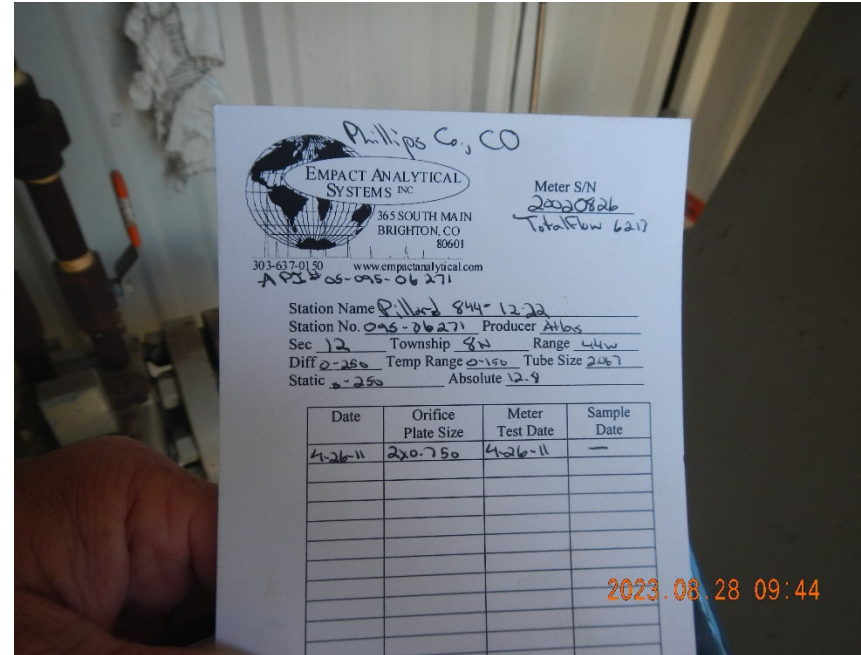 Phillips Co., CO
EMPACT ANALYTICAL
SYSTEMS INC
365 SOUTH MAIN
BRIGHTON, CO
80601
303-637-0150 www.empactanalytical.com
API# 05-095-06271
Meter S/N
20020826
TotalFlow 6213
Station Name Pillard 844-12-22
Station No. 095-06271 Producer Atlas
Sec 12 Township 8N Range 44W
Diff 0-250 Temp Range 0-150 Tube Size 2067
Static 0-250 Absolute 12.8
Date Orifice Plate Size Meter Test Date Sample Date
4-26-11 2x0.750 4-26-11 —
2023.08.28 09:44